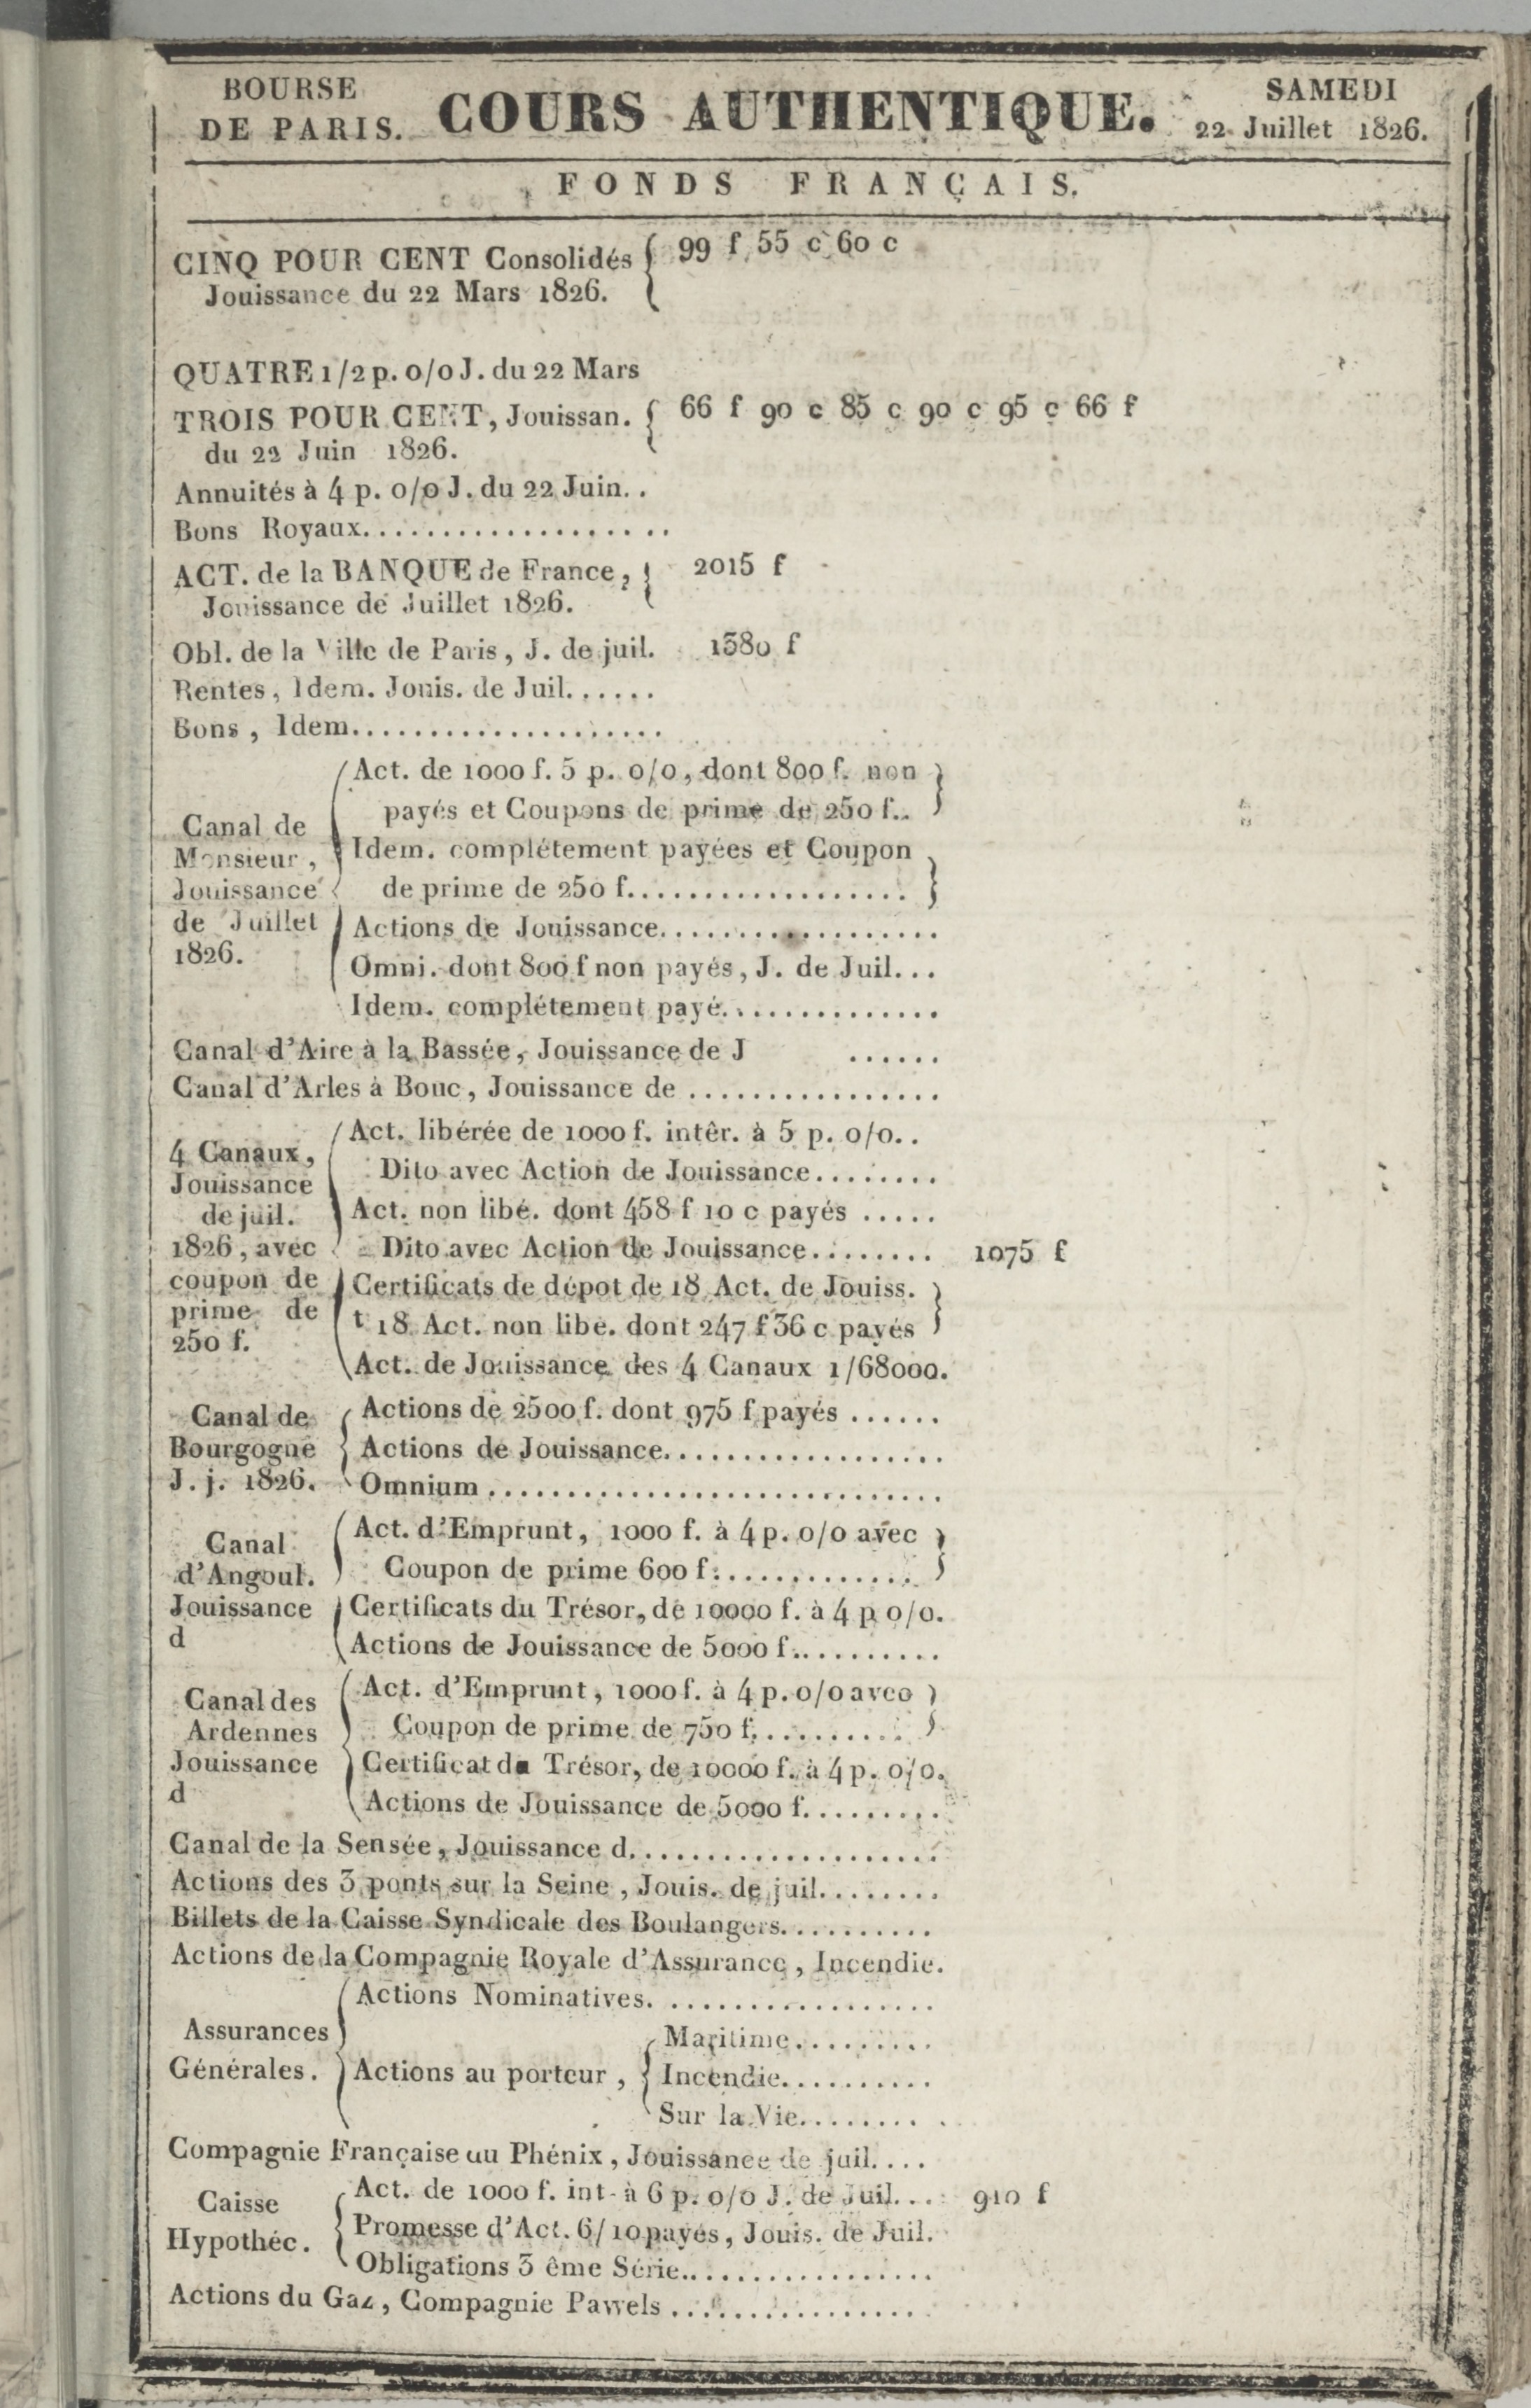 BOURSE
DE PARIS.
COURS AUTHENTIQUE.
SAMEDI
22 Juillet 1826.
FONDS FRANÇAIS.
CINQ POUR CENT Consolidés { 99 f 55 c 60 c
Jouissance du 22 Mars 1826.
QUATRE 1/2 p. o/o J. du 22 Mars
TROIS POUR CENT, Jouissan. { 66 f 90 c 85 c 90 c 95 c 66 f
du 22 Juin 1826.
Annuités à 4 p. o/o J. du 22 Juin. .
Bons Royaux...................
ACT. de la BANQUE de France, { 2015 f
Jouissance de Juillet 1826.
Obl. de la Ville de Paris, J. de juil. 1380 f
Rentes, Idem. Jouis. de Juil......
Bons, Idem....................
Canal de
Monsieur,
Jouissance
de Juillet
1826.
Act. de 1000 f. 5 p. o/o, dont 800 f. non
payés et Coupons de prime de 250 f..
Idem. complétement payées et Coupon
de prime de 250 f..................
Actions de Jouissance..................
Omni. dont 800 f non payés, J. de Juil...
Idem. complétement payé..............
Canal d'Aire à la Bassée, Jouissance de J ......
Canal d'Arles à Bouc, Jouissance de ................
4 Canaux,
Jouissance
de juil.
1826, avec
coupon de
prime de
250 f.
Act. libérée de 1000 f. intêr. à 5 p. o/o..
Dito avec Action de Jouissance........
Act. non libé. dont 458 f 10 c payés .....
Dito avec Action de Jouissance........ 1075 f
Certificats de dépot de 18 Act. de Jouiss.
t 18 Act. non libe. dont 247 f 36 c payés
Act. de Jouissance des 4 Canaux 1/68000.
Canal de
Bourgogne
J. j. 1826.
Actions de 2500 f. dont 975 f payés ......
Actions de Jouissance..................
Omnium .............................
Canal
d'Angoul.
Jouissance
d
Act. d'Emprunt, 1000 f. à 4 p. o/o avec
Coupon de prime 600 f..............
Certificats du Trésor, de 10000 f. à 4 p o/o.
Actions de Jouissance de 5000 f..........
Canal des
Ardennes
Jouissance
d
Act. d'Emprunt, 1000 f. à 4 p. o/o aveo
Coupon de prime de 750 f...........
Certificat du Trésor, de 10000 f. à 4 p. o/o.
Actions de Jouissance de 5000 f.........
Canal de la Sensée, Jouissance d....................
Actions des 3 ponts sur la Seine, Jouis. de juil........
Billets de la Caisse Syndicale des Boulangers..........
Actions de la Compagnie Royale d'Assurance, Incendie.
Assurances
Générales.
Actions Nominatives. .................
Actions au porteur, {
Maritime.........
Incendie..........
Sur la Vie........ .
Compagnie Française du Phénix, Jouissance de juil....
Caisse
Hypothéc.
Act. de 1000 f. int. à 6 p. o/o J. de Juil... 910 f
Promesse d'Act. 6/10 payés, Jouis. de Juil.
Obligations 3 ême Série.................
Actions du Gaz, Compagnie Pawels ................